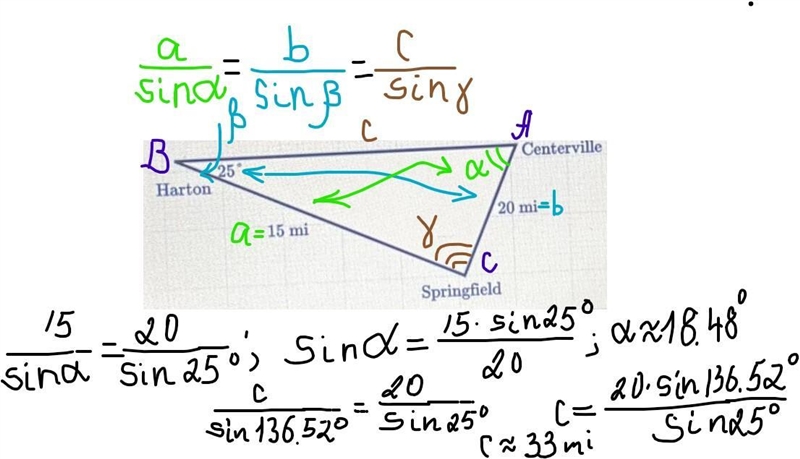 a/sinα = b/sinβ = c/sinγ
β
c
B
A
Centerville
25°
α
Harton
20 mi=b
a=15 mi
γ
C
Springfield
15/sinα = 20/sin25°; sinα = 15·sin25°/20; α≈18.48°
c/sin136.52° = 20/sin25° c= 20·sin136.52°/sin25°
c≈33mi